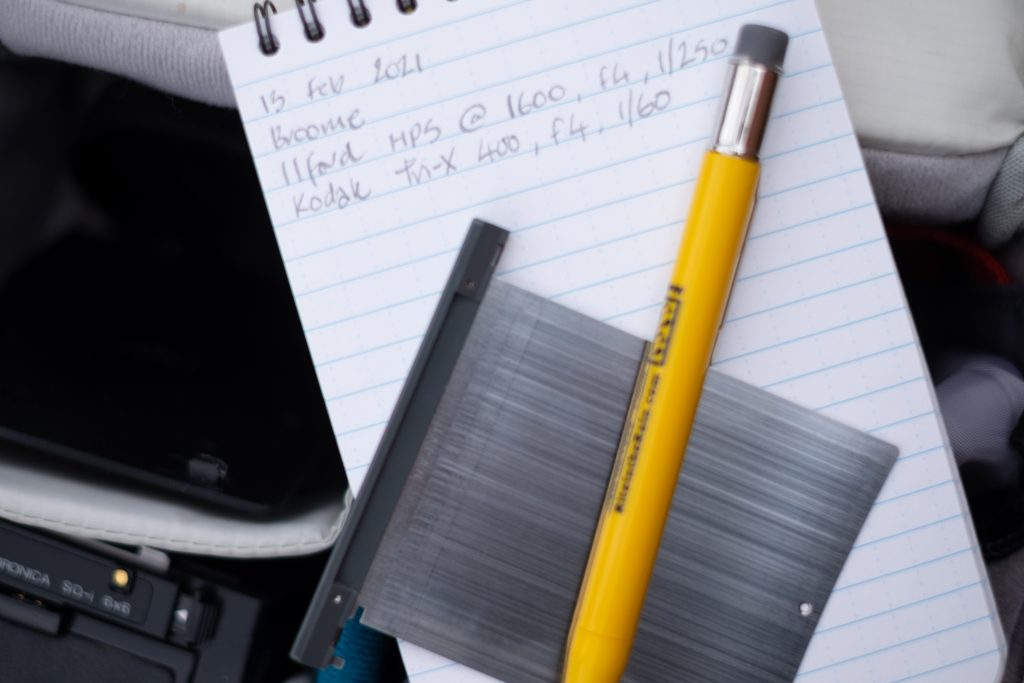 13 Feb 2021
Broome
Ilford HP5 @ 1600, f4, 1/250
Kodak Tri-X 400, f4, 1/60
RiteintheRain.com
BRONICA SQ-i 6x6